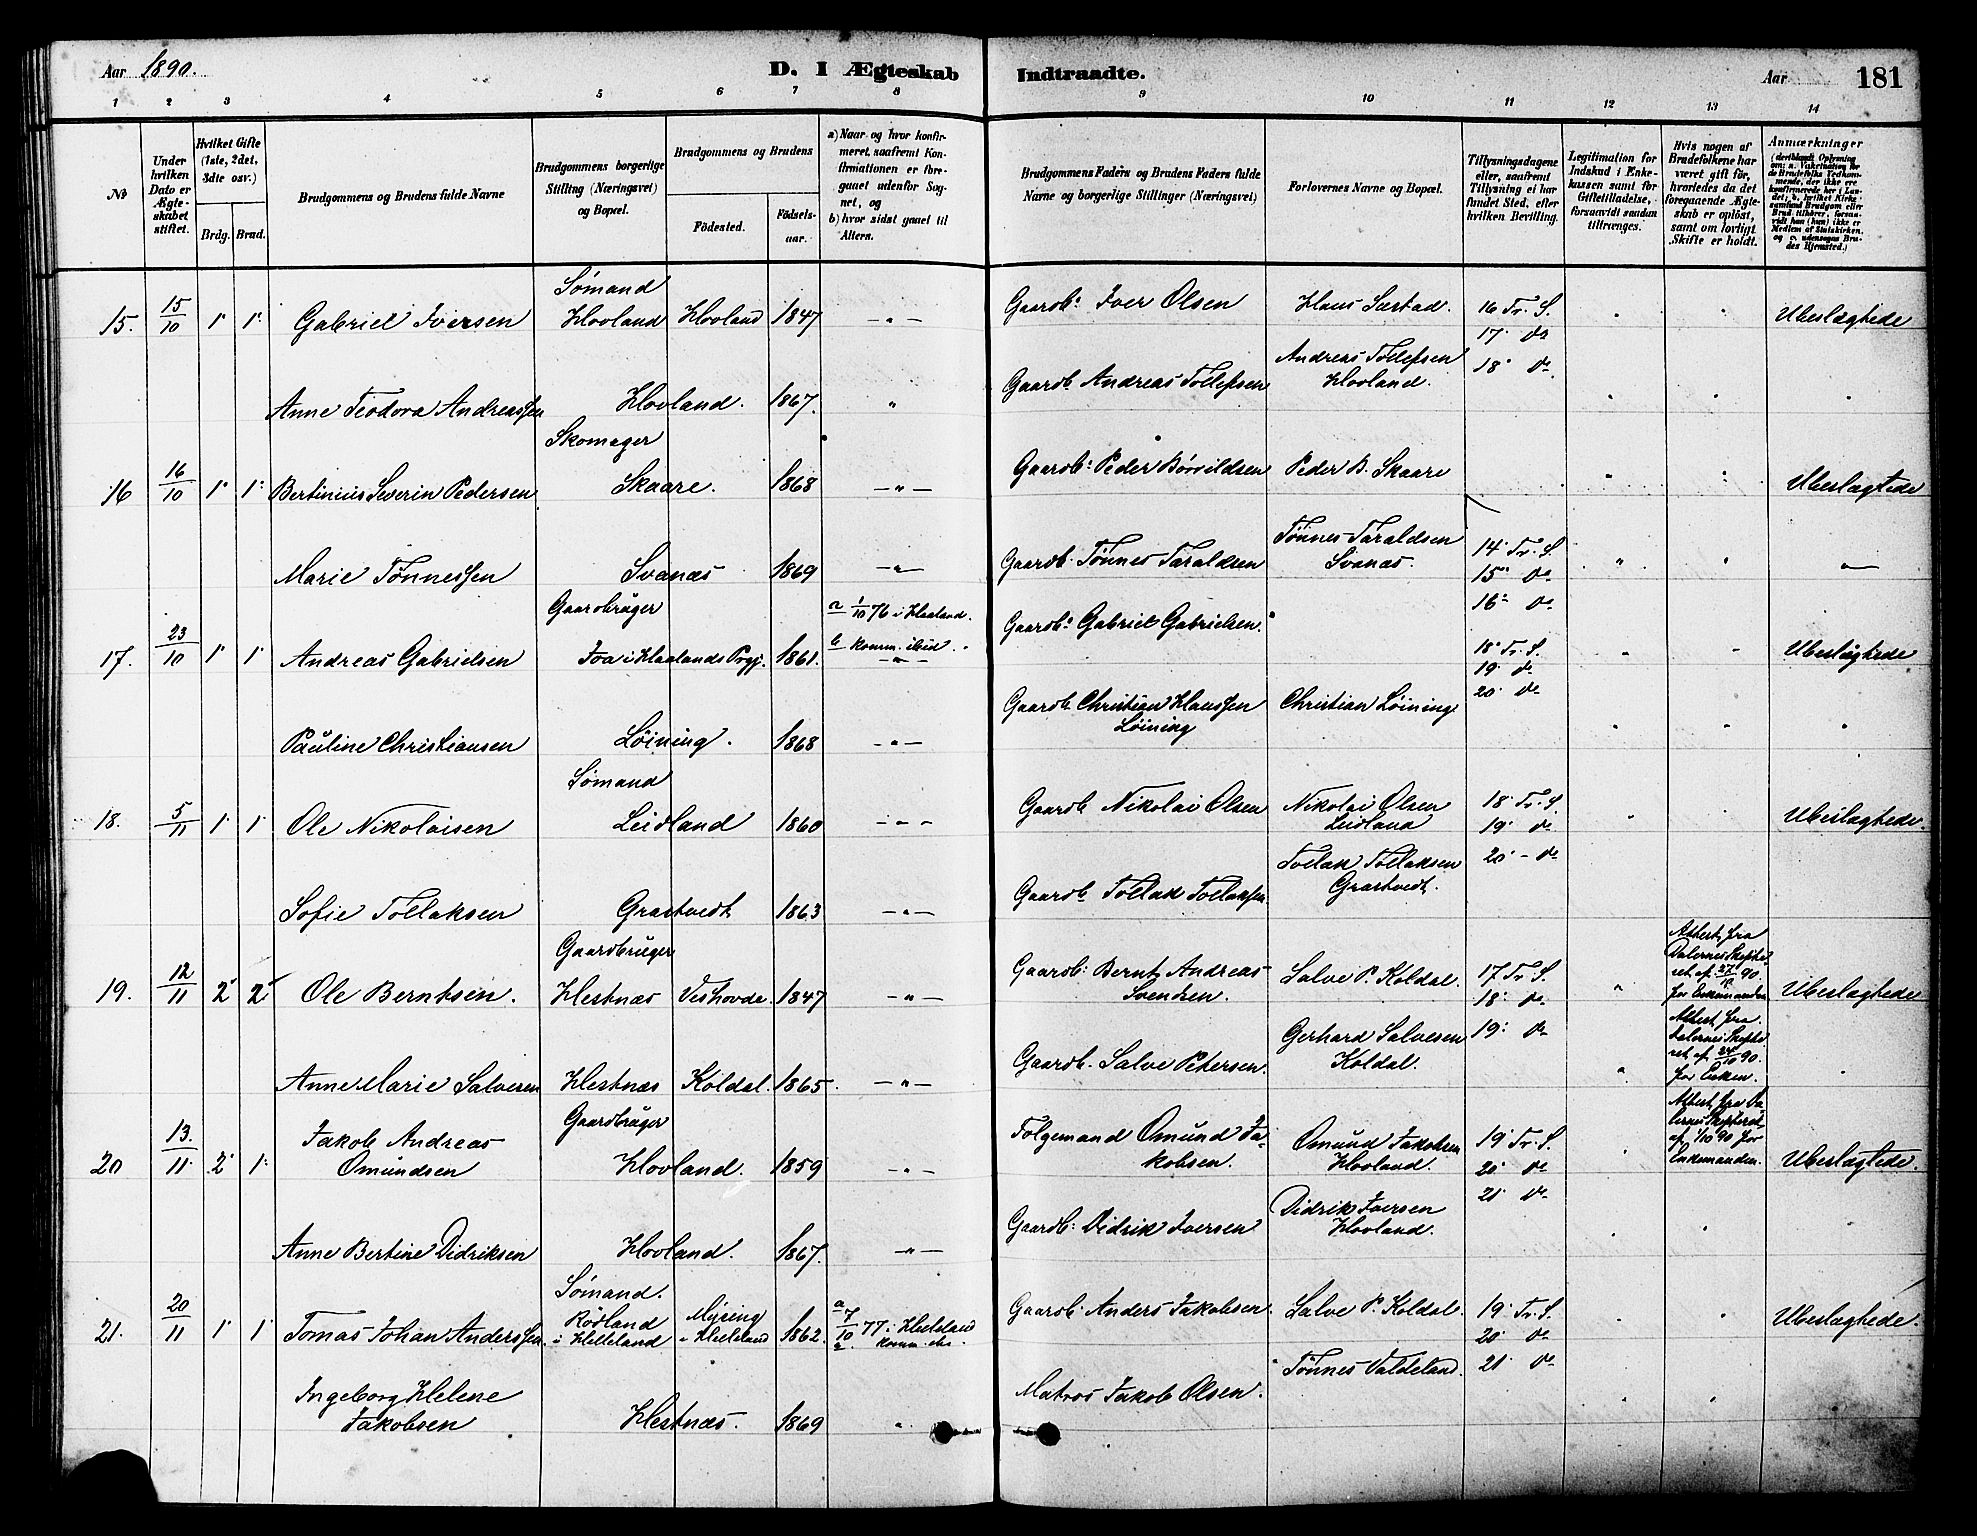 Aar 1890.
D. I Ægteskab Indtraadte.
Aar 181
1 2 3 4 5 6 7 8 9 10 11 12 13 14
No
Under hvilken Dato er Ægteskabet stiftet.
Hvilket Gifte (1ste, 2det, 3die osv.)
Brdg. Brud.
Brudgommens og Brudens fulde Navne
Brudgommens borgerlige Stilling (Næringsvei) og Bopæl.
Brudgommens og Brudens
Födested.
Födselsaar.
a) Naar og hvor konfirmeret, saafremt Konfirmationen er foregaaet udenfor Sognet, og
b) hvor sidst gaaet til Alters.
Brudgommens Faders og Brudens Faders fulde Navne og borgerlige Stillinger (Næringsvei)
Forlovernes Navne og Bopæl.
Tillysningsdagene eller, saafremt Tillysning ei har fundet Sted, efter hvilken Bevilling.
Legitimation for Indskud i Enkekassen samt for Giftetilladelse, forsaavidt saadan tiltrænges.
Hvis nogen af Brudefolkene har været gift för, hvorledes da det foregaaende Ægteskab er oplöst, samt om lovligt Skifte er holdt.
Anmærkninger
15. 15/10 1 1 Gabriel Iversen Sømand Hovland Hovland 1847 -"- Gaardb. Iver Olsen Hans Sæstad. 16 Tr. S. Ubeslægtede
17 do
18 do
Anne Teodora Andreassen Hovland. 1867. " Gaardb. Andreas Tollefsen Andreas Tollefsen Hovland.
16 16/10 1 1 Bertinius Severin Pedersen Skomager Skaare. 1868 -"- Gaardb: Peder Børvildsen Peder B. Skaare Ubeslægtede
Marie Tønnessen Svanæs 1869 -"- Gaardb. Tønnes Taraldsen Tønnes Taraldsen Svanæs. 14 Tr. S.
15 do
16 do
17. 23/10 1 1 Andreas Gabrielsen Gaardbruger Iva i Haalands Prgj. 1861. a 1/10 76 i Haaland. b komm. ibid. -"- Gaardb. Gabriel Gabrielsen. 18 Tr. S. Ubeslægtede
19 do
20 do
Pauline Christiansen Løining. 1868 -"- Gaardb. Christian Hanssen Løining Christian Løining
18. 5/11 1 1 Ole Nikolaisen Sømand Leidland 1860 -"- Gaardb. Nikolai Olsen Nikolai Olsen Leidland 18 Tr. S. Ubeslægtede.
19 do
20 - do
Sofie Tollaksen Grastvedt 1863 -"- Gaardb. Tollak Tollaksen Tollak Tollaksen Grastvedt.
19. 12/11 2 2 Ole Berntsen. Gaardbruger Hestnæs Veshovde. 1847 -"- Gaardb: Bernt Andreas Svendsen. Salve P. Koldal. 17 Tr. S. Attest fra Dalernes Skifteret af 27/10 90. for Enkemanden Ubeslægtede
18 do
19 do
Anne Marie Salvesen Hestnæs Koldal. 1865. -"- Gaardb. Salve Petersen. Gerhard Salvesen Koldal. Attest fra Dalernes Skifteret af 24/10 90. for Enken.
20 13./11 2 1 Jakob Andreas Omundsen Gaardbruger Hovland. 1859 -"- Folgemand Omund Jakobsen. Omund Jakobsen Hovland. 19 Tr. S. Attest fra Dalernes Skifteret af 1/10 90 for Enkemanden. Ubeslægtede.
20 do
21 do
Anne Bertine Didriksen Hovland. 1867. -"- Gaardb: Didrik Iversen Didrik Iversen Hovland.
21. 20/11 1 1 Tomas Johan Anderssen. Sømand. Rødland i Helleland Myring i Helleland 1862. a 7/10 77 i Helleland Gaardb. Anders Jakobsen. Salve P. Koldal. 19 Tr. S. Ubeslægtede.
20 do
21 do
Ingeborg Helene Jakobsen Hestnæs. 1869 " Matros Jakob Olsen. Tønnes Valdeland.